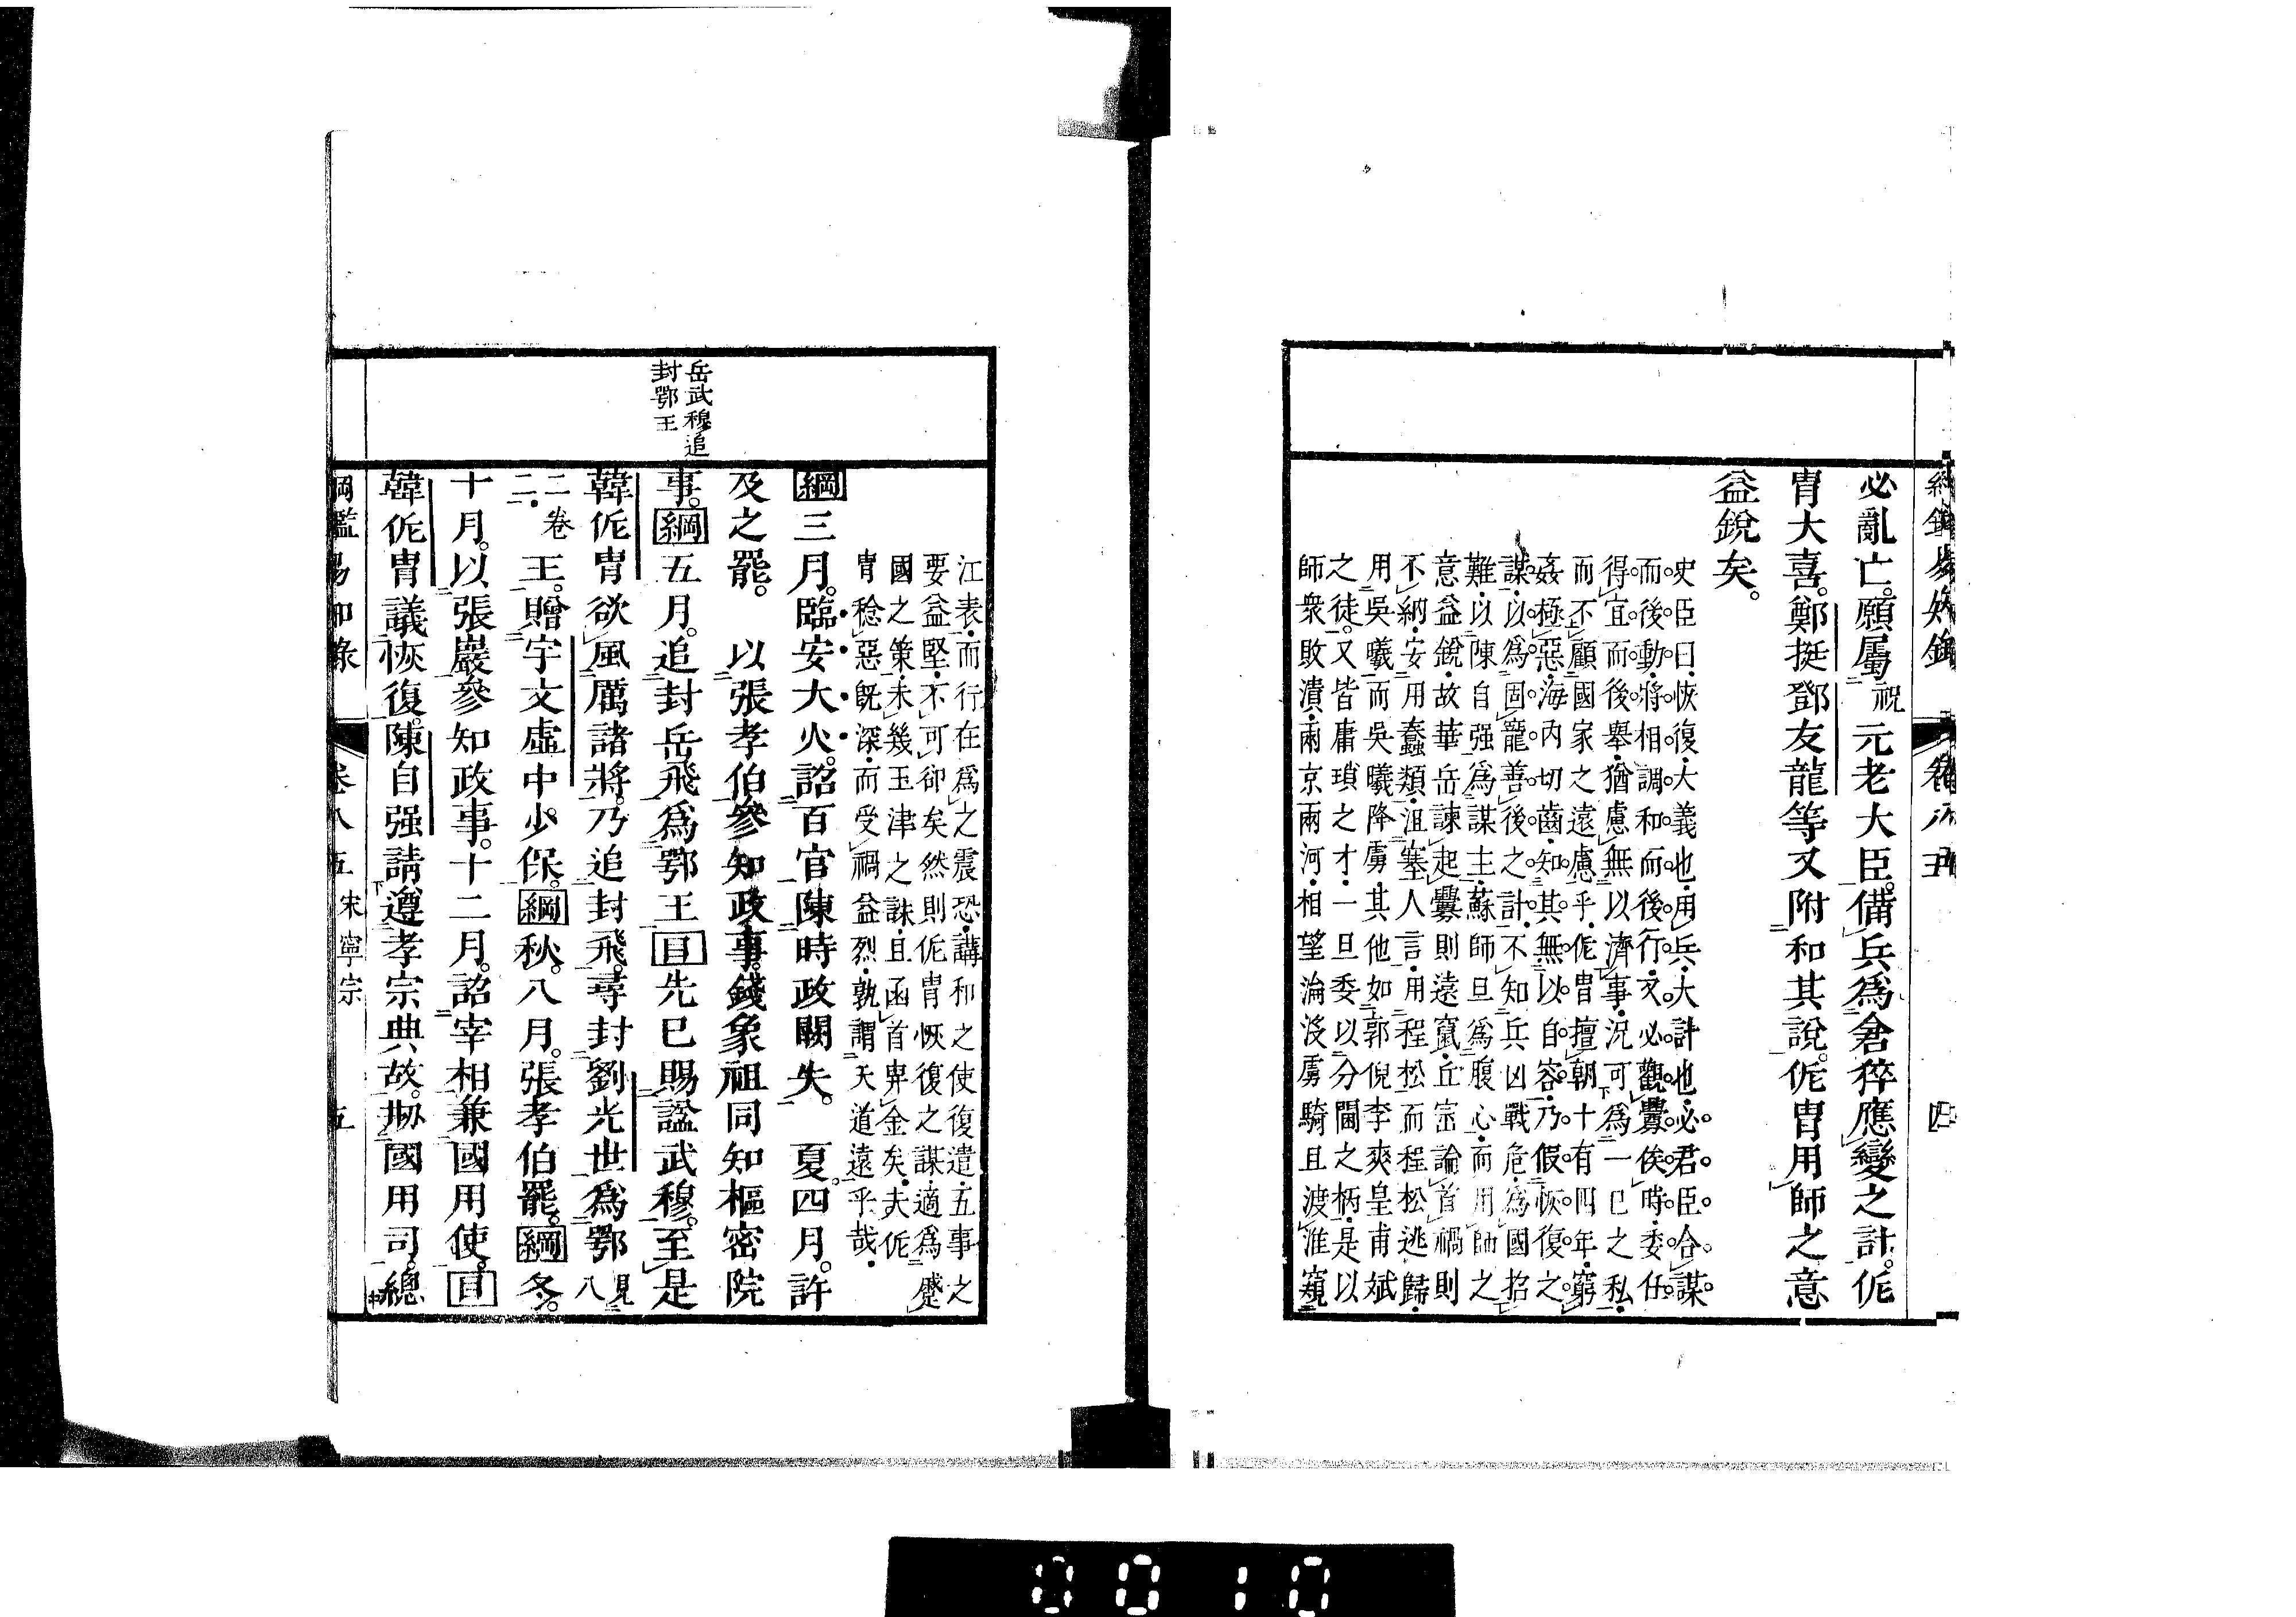 綱鑑易知錄 卷八五 四
必亂亡。願屬祝元老大臣。備兵爲倉猝應變之計。侂
胄大喜。鄭挺鄧友龍等又附和其說。侂胄用師之意
益銳矣。
史臣曰。恢復大義也。用兵大計也。必君臣合謀
而後動。將相調和而後行。又必觀釁俟時。委任
得宜而後舉。猶慮無以濟事。況可爲一己之私
而不顧國家之遠慮乎。侂胄擅朝十有四年。窮
姦極惡。海內切齒。知其無以自容。乃假恢復之
謀。以爲固寵善後之計。不知兵凶戰危。爲國招
難。以陳自强爲謀主。蘇師旦爲腹心。而用師之
意益銳。故華岳諫起釁則遠竄。丘崈論首禍則
不納。安用蠢類。沮塞人言。用程松而程松逃歸。
用吳曦而吳曦降虜。其他如郭倪李爽皇甫斌
之徒。又皆庸瑣之才。一旦委以分閫之柄。是以
師衆敗潰。兩京兩河。相望淪沒。虜騎且渡淮窺
江表。而行在爲之震恐。講和之使復遣。五事之
要益堅。不可卻矣。然則侂胄恢復之謀。適爲蹙
國之策。未幾玉津之誅。且函首畀金矣。夫侂
胄稔惡旣深。而受禍益烈。孰謂天道遠乎哉。
綱三月。臨安大火。詔百官陳時政闕失。 夏。四月。許
及之罷。 以張孝伯參知政事。錢象祖同知樞密院
岳武穆追
封鄂王
事。綱五月。追封岳飛爲鄂王目先已賜諡武穆。至是
韓侂胄欲風厲諸將。乃追封飛。尋封劉光世爲鄜見八
二卷二王。贈宇文虛中少保。綱秋。八月。張孝伯罷。綱冬。
十月。以張巖參知政事。十二月。詔宰相兼國用使。目
韓侂胄議恢復。陳自强請遵孝宗典故。刱國用司。總
綱鑑易知錄 卷八五 宋寧宗 五
0010